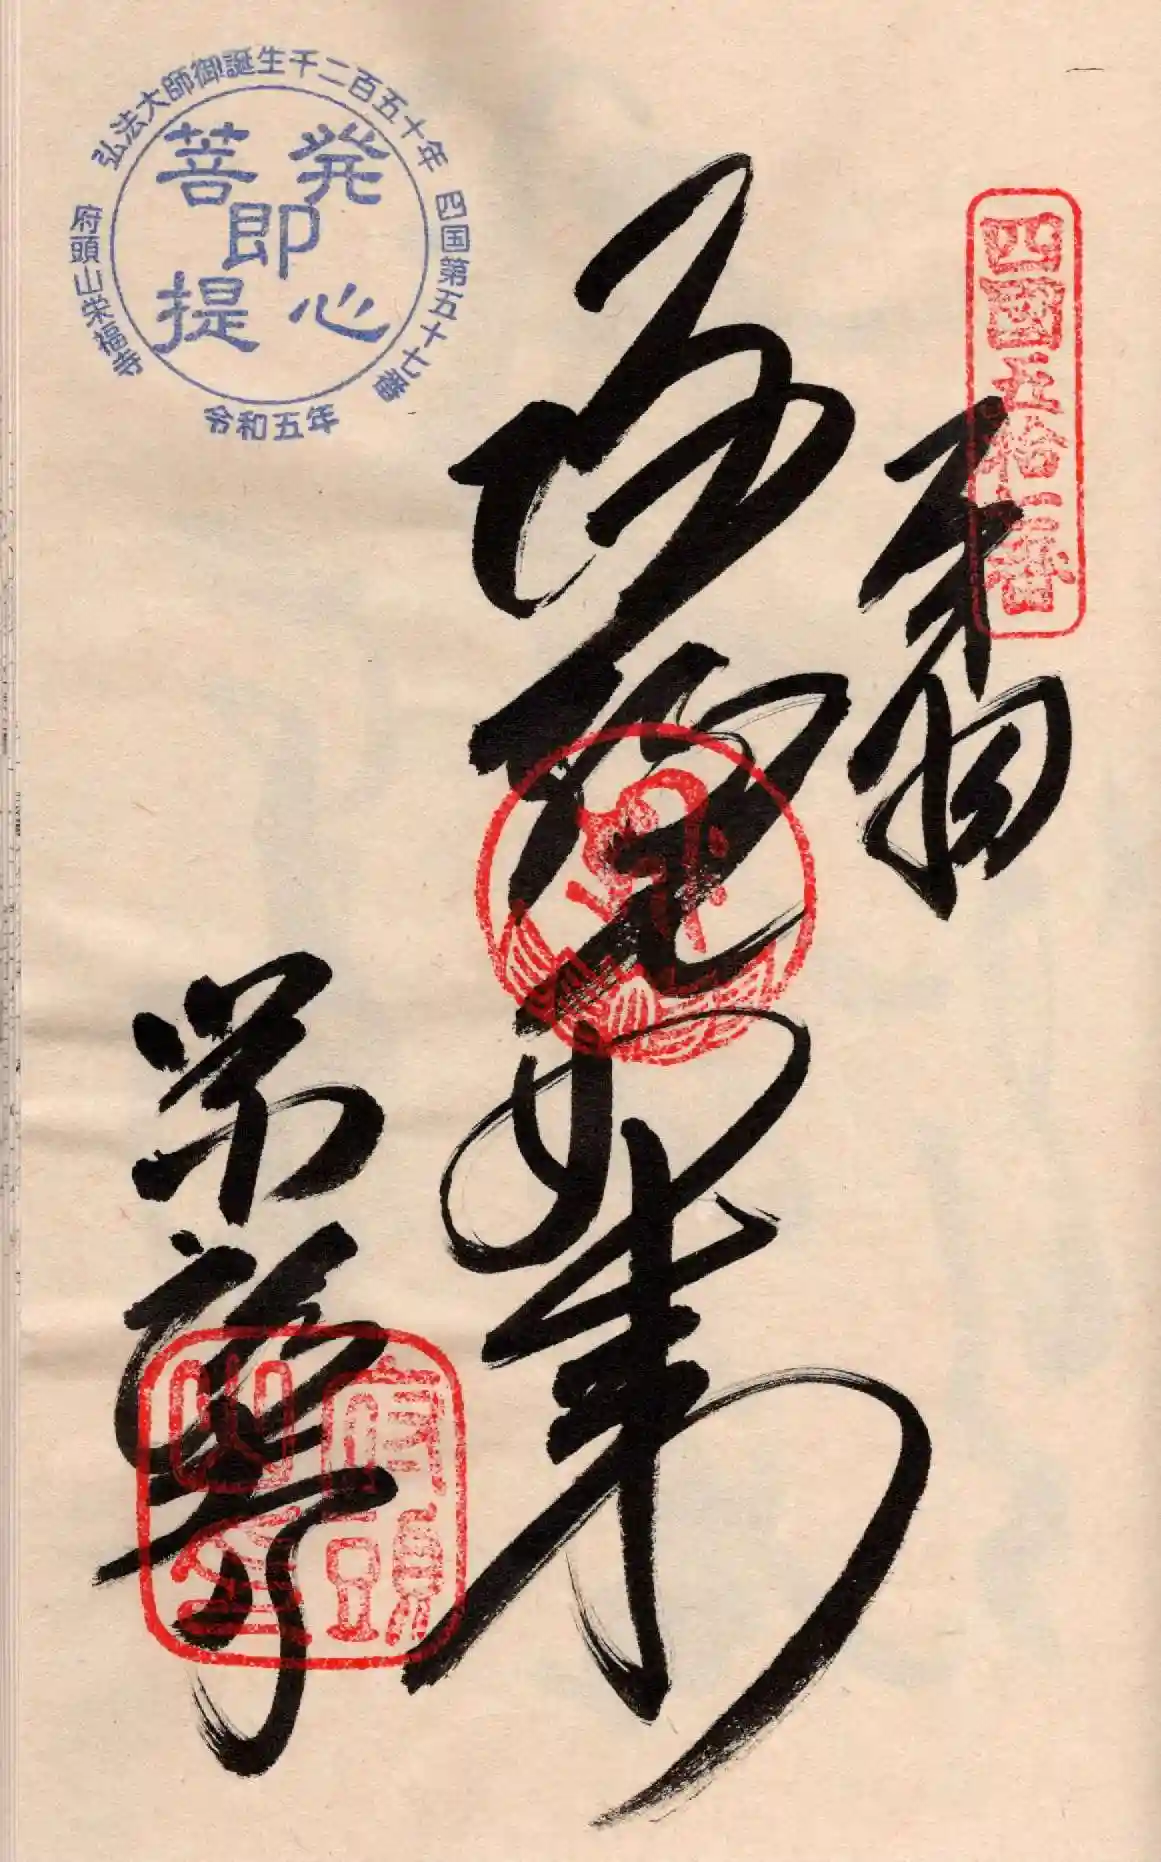 四國五拾七番
奉納
阿弥陀如来
栄福寺
府頭山
弘法大師御誕生千二百五十年
四国第五十七番
府頭山栄福寺
令和五年
発心
即
菩提